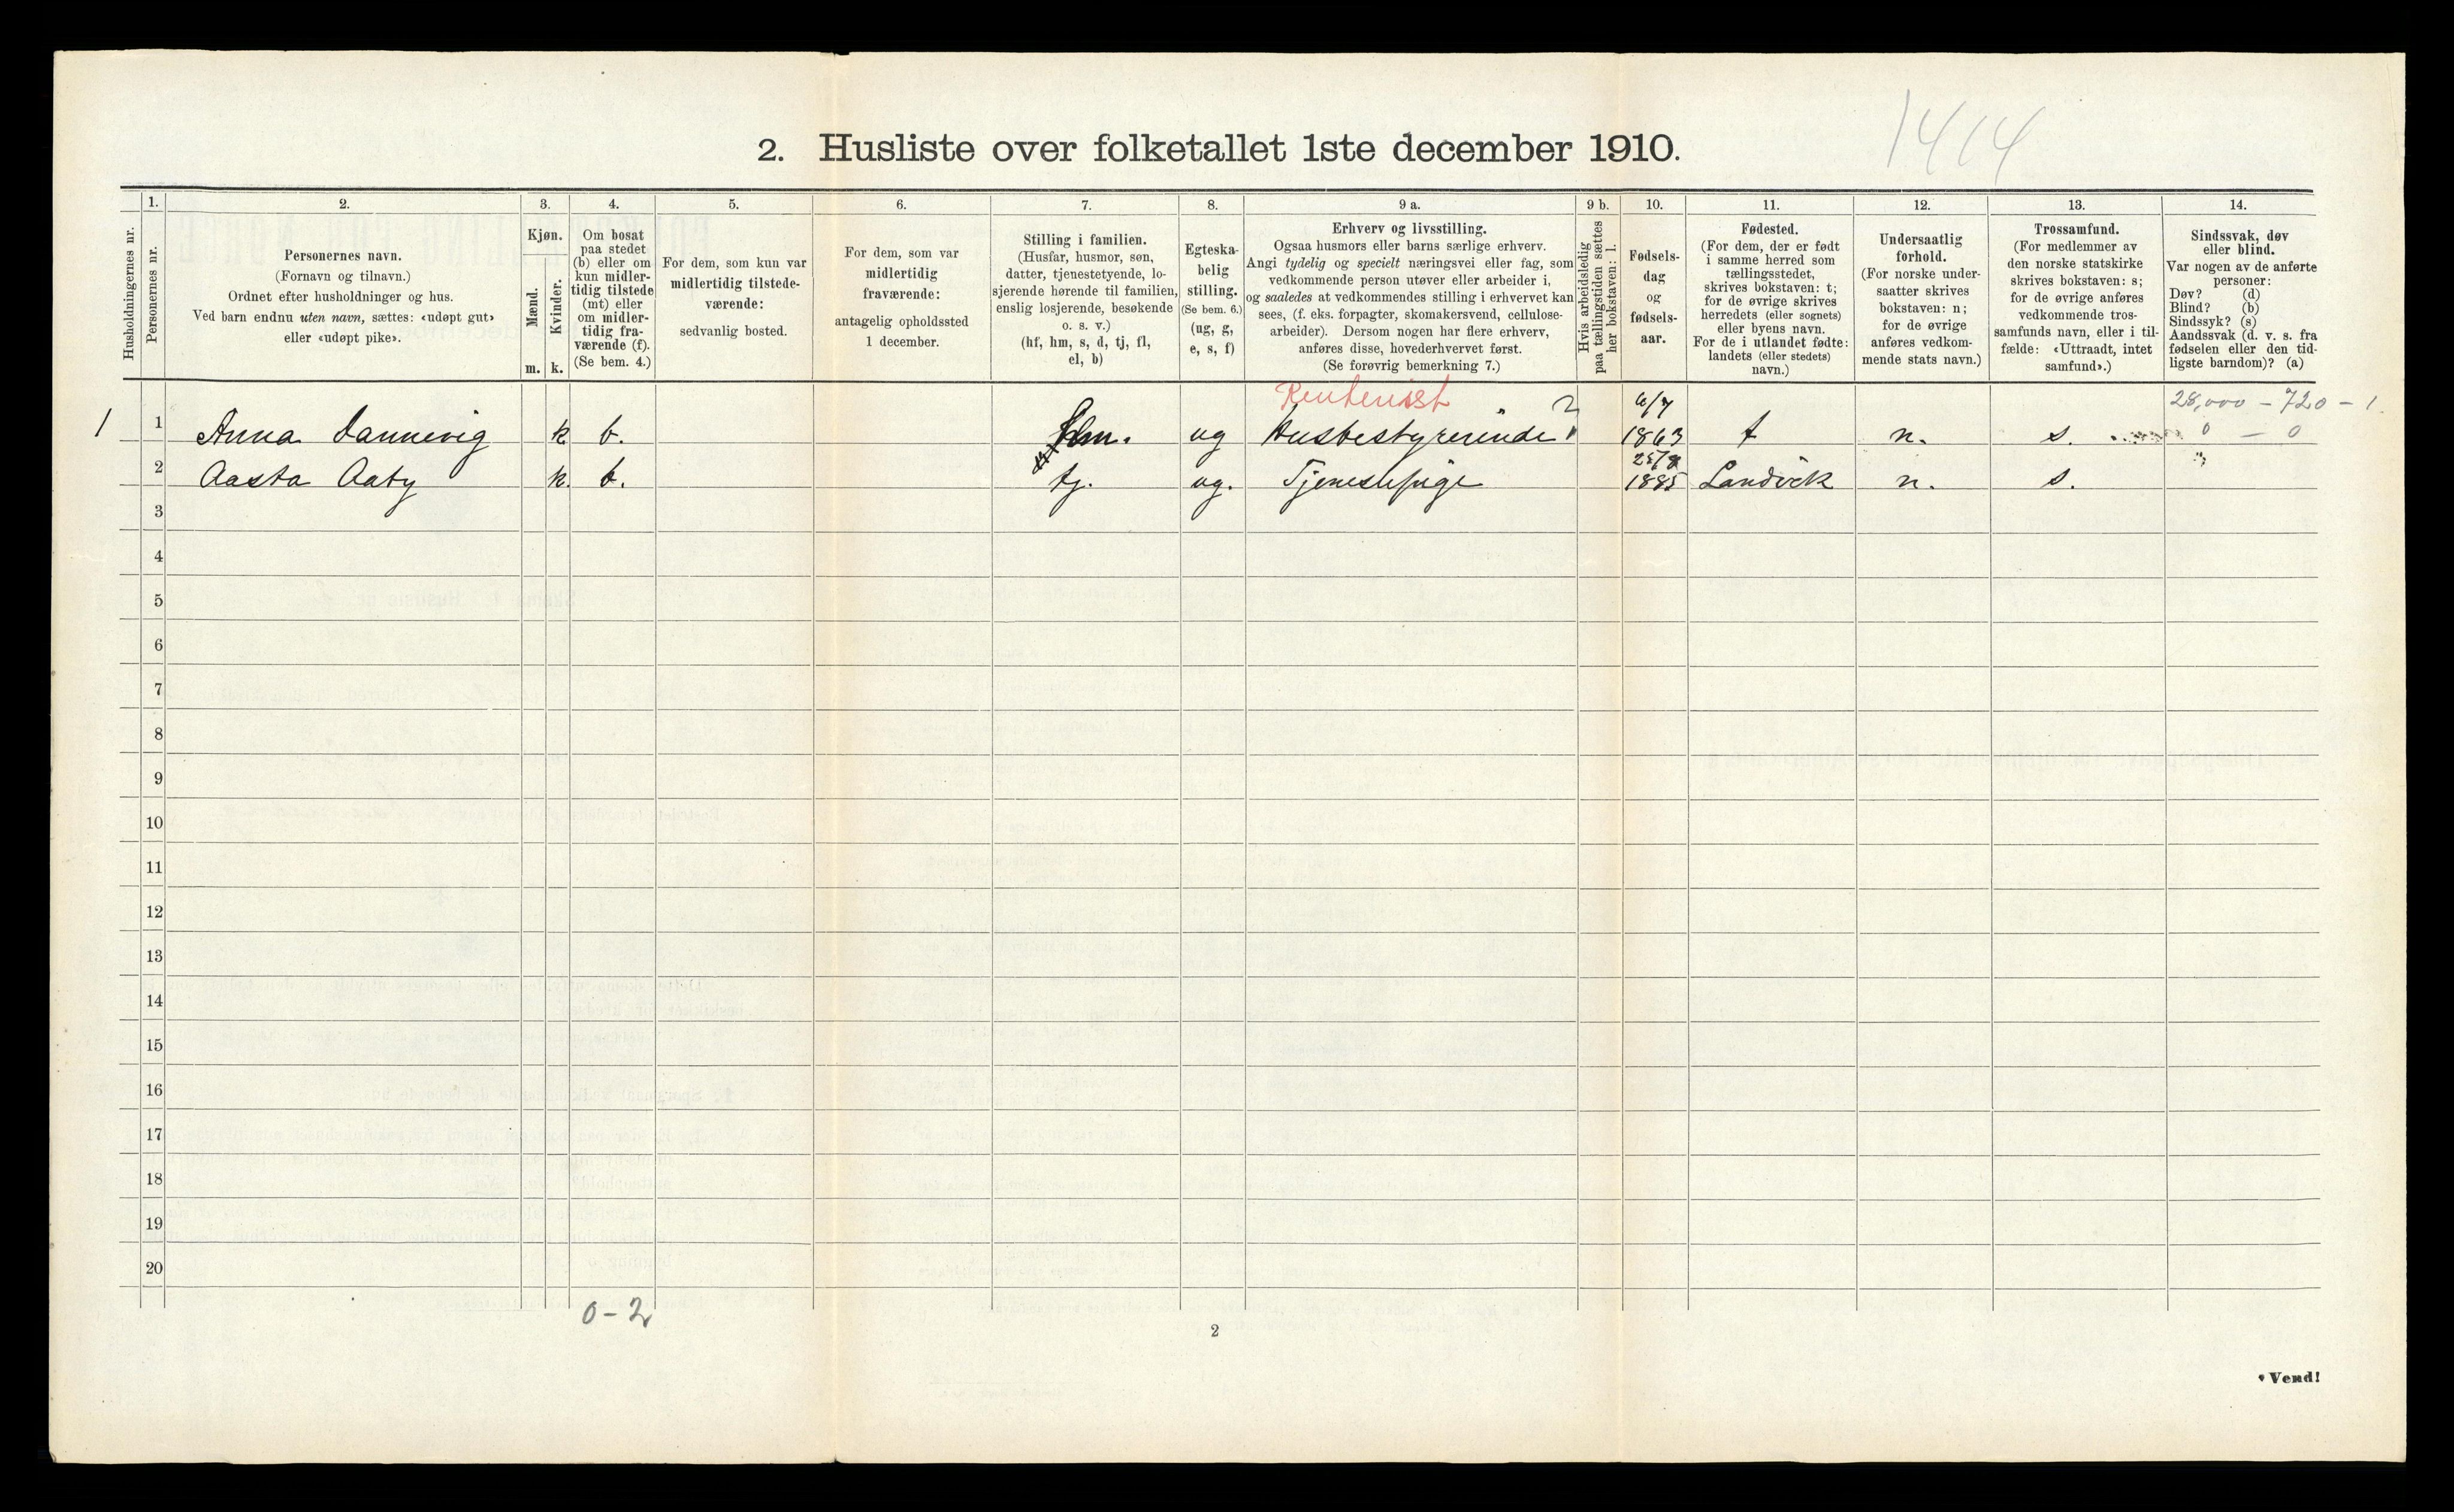 1414
2. Husliste over folketallet 1ste december 1910.
Husholdningernes nr.
1. Personernes nr.
2. Personernes navn.
(Fornavn og tilnavn.)
Ordnet efter husholdninger og hus.
Ved barn endnu uten navn, sættes: «udøpt gut»
eller «udøpt pike».
3. Kjøn.
Mænd. m.
Kvinder. k.
4. Om bosat
paa stedet
(b) eller om
kun midler-
tidig tilstede
(mt) eller
om midler-
tidig fra-
værende (f).
(Se bem. 4.)
5. For dem, som kun var
midlertidig tilstede-
værende:
sedvanlig bosted.
6. For dem, som var
midlertidig
fraværende:
antagelig opholdssted
1 december.
7. Stilling i familien.
(Husfar, husmor, søn,
datter, tjenestetyende, lo-
sjerende hørende til familien,
enslig losjerende, besøkende
o. s. v.)
(hf, hm, s, d, tj, fl,
el, b)
8. Egteska-
belig
stilling.
(Se bem. 6.)
(ug, g,
e, s, f)
9 a. Erhverv og livsstilling.
Ogsaa husmors eller barns særlige erhverv.
Angi tydelig og specielt næringsvei eller fag, som
vedkommende person utøver eller arbeider i,
og saaledes at vedkommendes stilling i erhvervet kan
sees, (f. eks. forpagter, skomakersvend, cellulose-
arbeider). Dersom nogen har flere erhverv,
anføres disse, hovederhvervet først.
(Se forøvrig bemerkning 7.)
9 b. Hvis arbeidsledig
paa tællingstiden sættes
her bokstaven: l.
10. Fødsels-
dag
og
fødsels-
aar.
11. Fødested.
(For dem, der er født
i samme herred som
tællingsstedet,
skrives bokstaven: t;
for de øvrige skrives
herredets (eller sognets)
eller byens navn.
For de i utlandet fødte:
landets (eller stedets)
navn.)
12. Undersaatlig
forhold.
(For norske under-
saatter skrives
bokstaven: n;
for de øvrige
anføres vedkom-
mende stats navn.)
13. Trossamfund.
(For medlemmer av
den norske statskirke
skrives bokstaven: s;
for de øvrige anføres
vedkommende tros-
samfunds navn, eller i til-
fælde: «Uttraadt, intet
samfund».)
14. Sindssvak, døv
eller blind.
Var nogen av de anførte
personer:
Døv? (d)
Blind? (b)
Sindssyk? (s)
Aandssvak (d. v. s. fra
fødselen eller den tid-
ligste barndom)? (a)
Rentenist 6/7 28,000 – 720 – 1.
1 1 Anna Dannevig k b. hm. ug Husbestyrerinde 1863 t n. s. 0 – 0
2 Aasta Aaby k. b. tj. ug. Tjenestepige 25/8 1885 Landvik n. s. "
3
4
5
6
7
8
9
10
11
12
13
14
15
16
17
18
19
20
0 – 2
2
Vend!